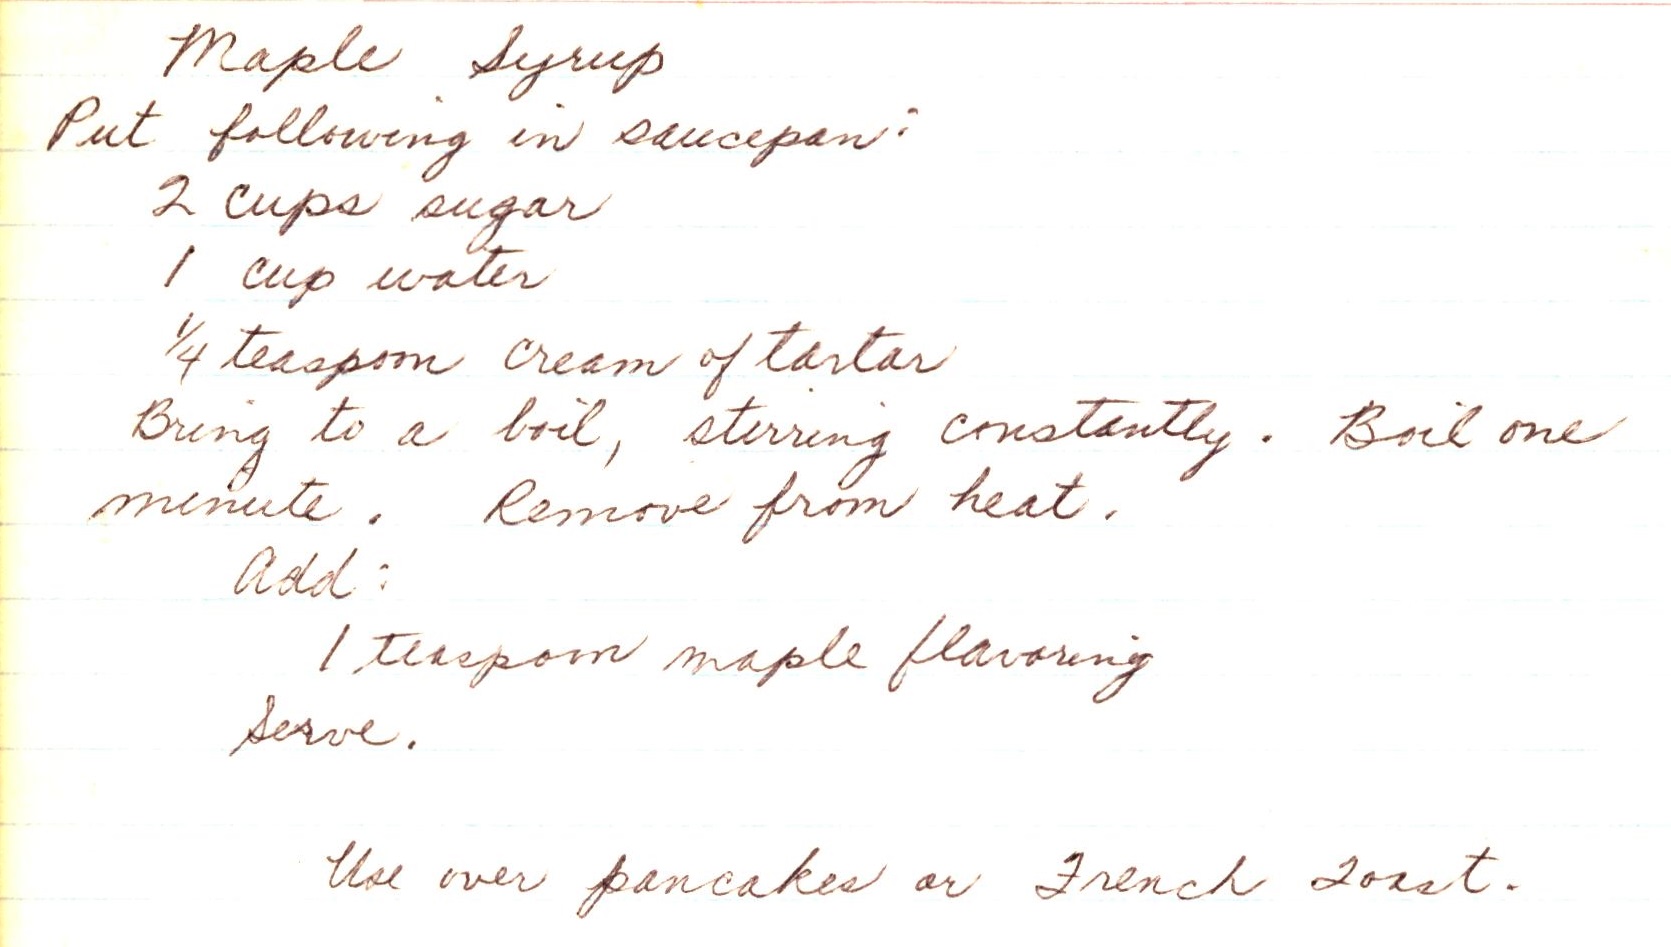 Maple Syrup
Put following in saucepan:
2 cups sugar
1 cup water
1/4 teaspoon cream of tartar
Bring to a boil, stirring constantly. Boil one
minute. Remove from heat.
Add:
1 teaspoon maple flavoring
Serve.
Use over pancakes or French Toast.